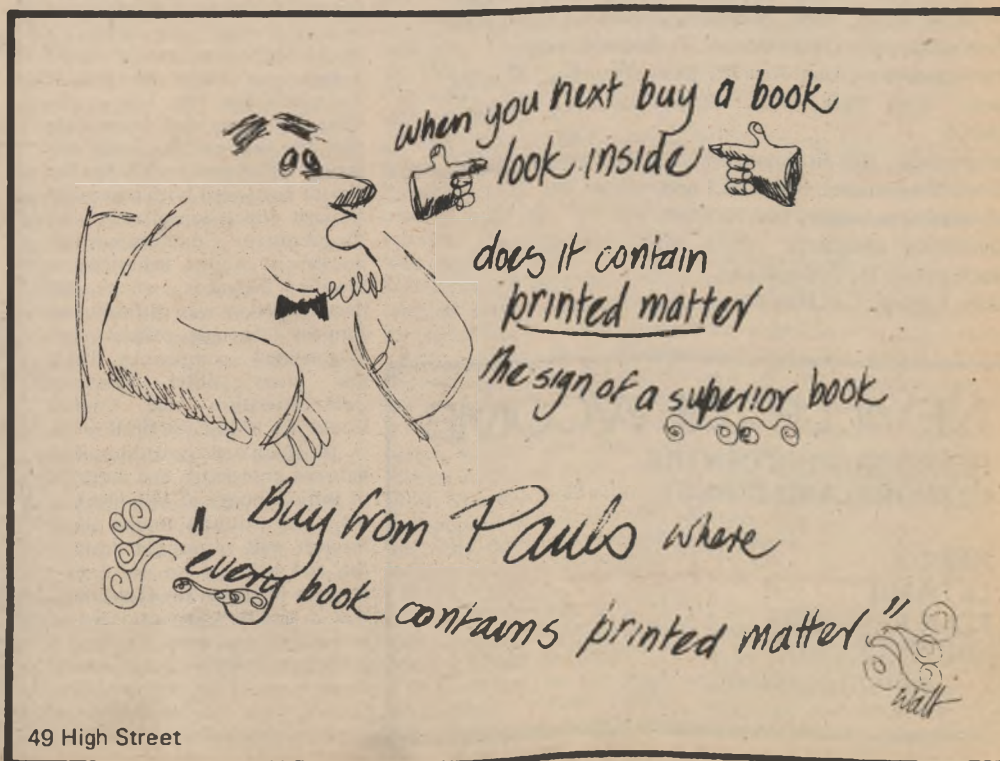 when you next buy a book
look inside
does it contain
printed matter
the sign of a superior book
Buy from Pauls where
"every book contains printed matter"
Walt
49 High Street